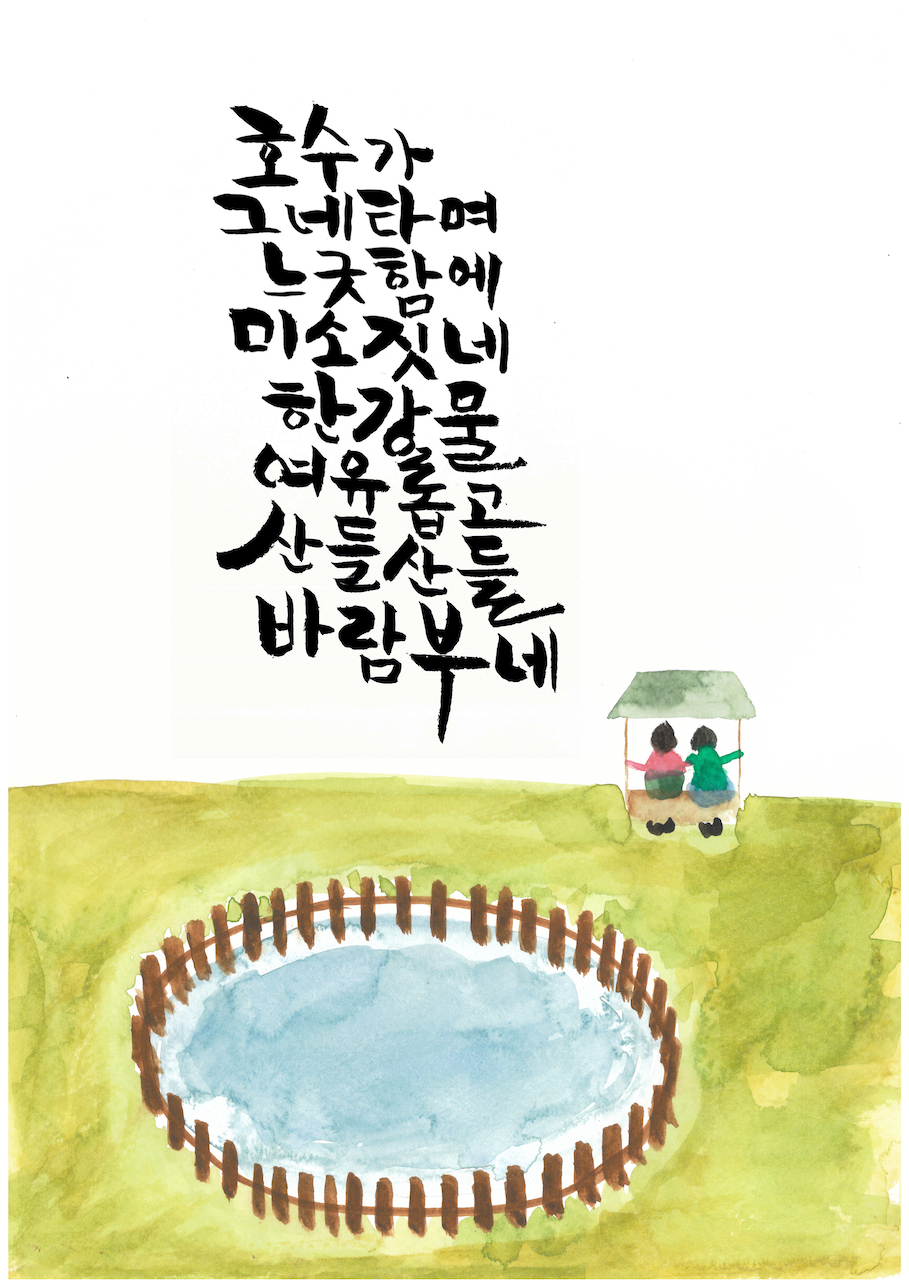 호수가
그네타며
느긋함에
미소짓네
한강물
여유롭고
산들산들
바람부네